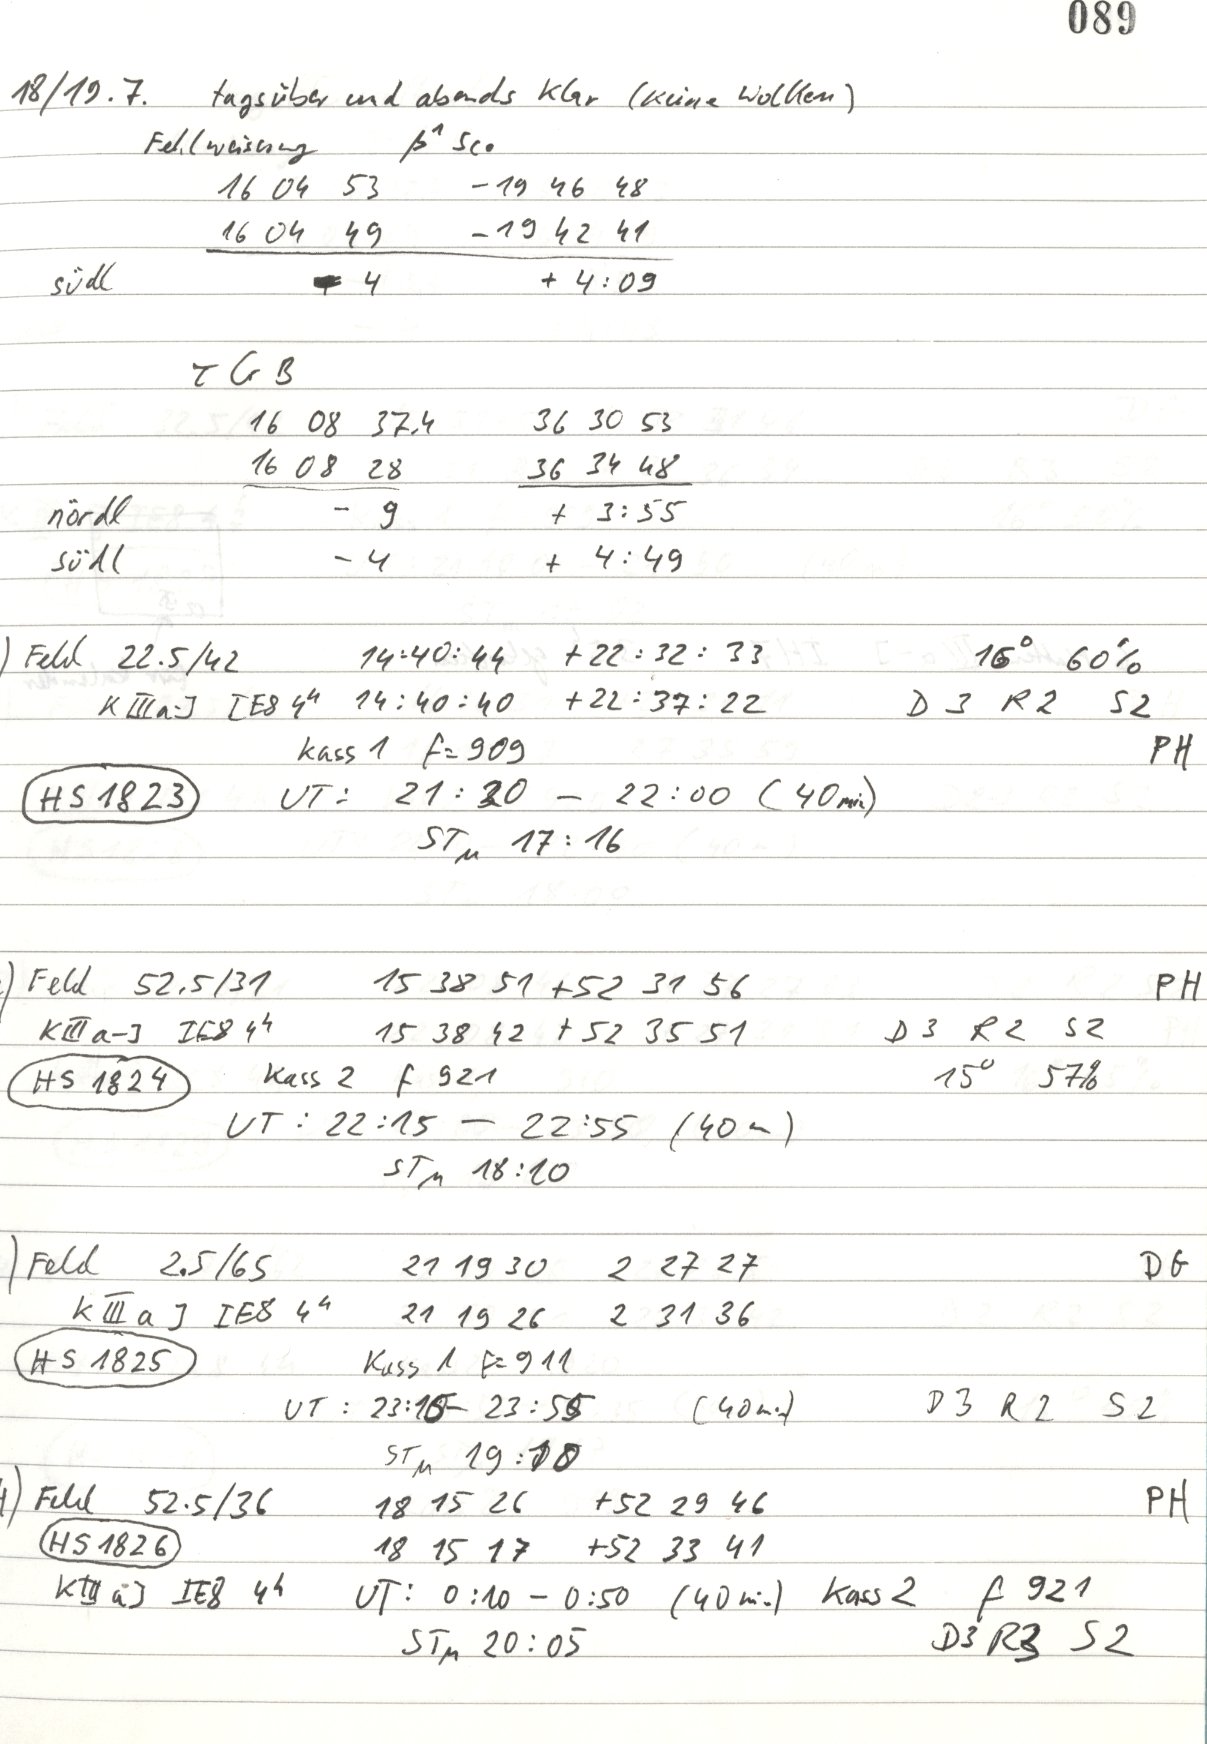 089
18/19.7. tagsüber und abends klar (keine Wolken)
Fehlweisung β¹ Sco
16 04 53 -19 46 48
16 04 49 -19 42 41
südl 4 + 4:09
τ CrB
16 08 37.4 36 30 53
16 08 28 36 34 48
nördl - 9 + 3:55
südl - 4 + 4:49
) Feld 22.5/42 14:40:44 +22:32:33 16° 60%
KIIIa-J IE8 4ʰ 14:40:40 +22:37:22 D3 R2 S2
Kass 1 f=909 PH
HS 1823 UT: 21:20 – 22:00 (40 min)
STM 17:16
) Feld 52.5/31 15 38 51 +52 31 56 PH
KIIIa-J IE8 4ʰ 15 38 42 +52 35 51 D3 R2 S2
HS 1824 Kass 2 f 921 15° 57%
UT: 22:15 – 22:55 (40 m)
STM 18:10
) Feld 2.5/65 21 19 30 2 27 27 DG
KIIIa J IE8 4ʰ 21 19 26 2 31 36
HS 1825 Kass 1 f=911
UT: 23:15 – 23:55 (40min) D3 R2 S2
STM 19:10
4) Feld 52.5/36 18 15 26 +52 29 46 PH
HS 1826 18 15 17 +52 33 41
KIIIaJ IE8 4ʰ UT: 0:10 – 0:50 (40min) Kass 2 f 921
STM 20:05 D3 R3 S2